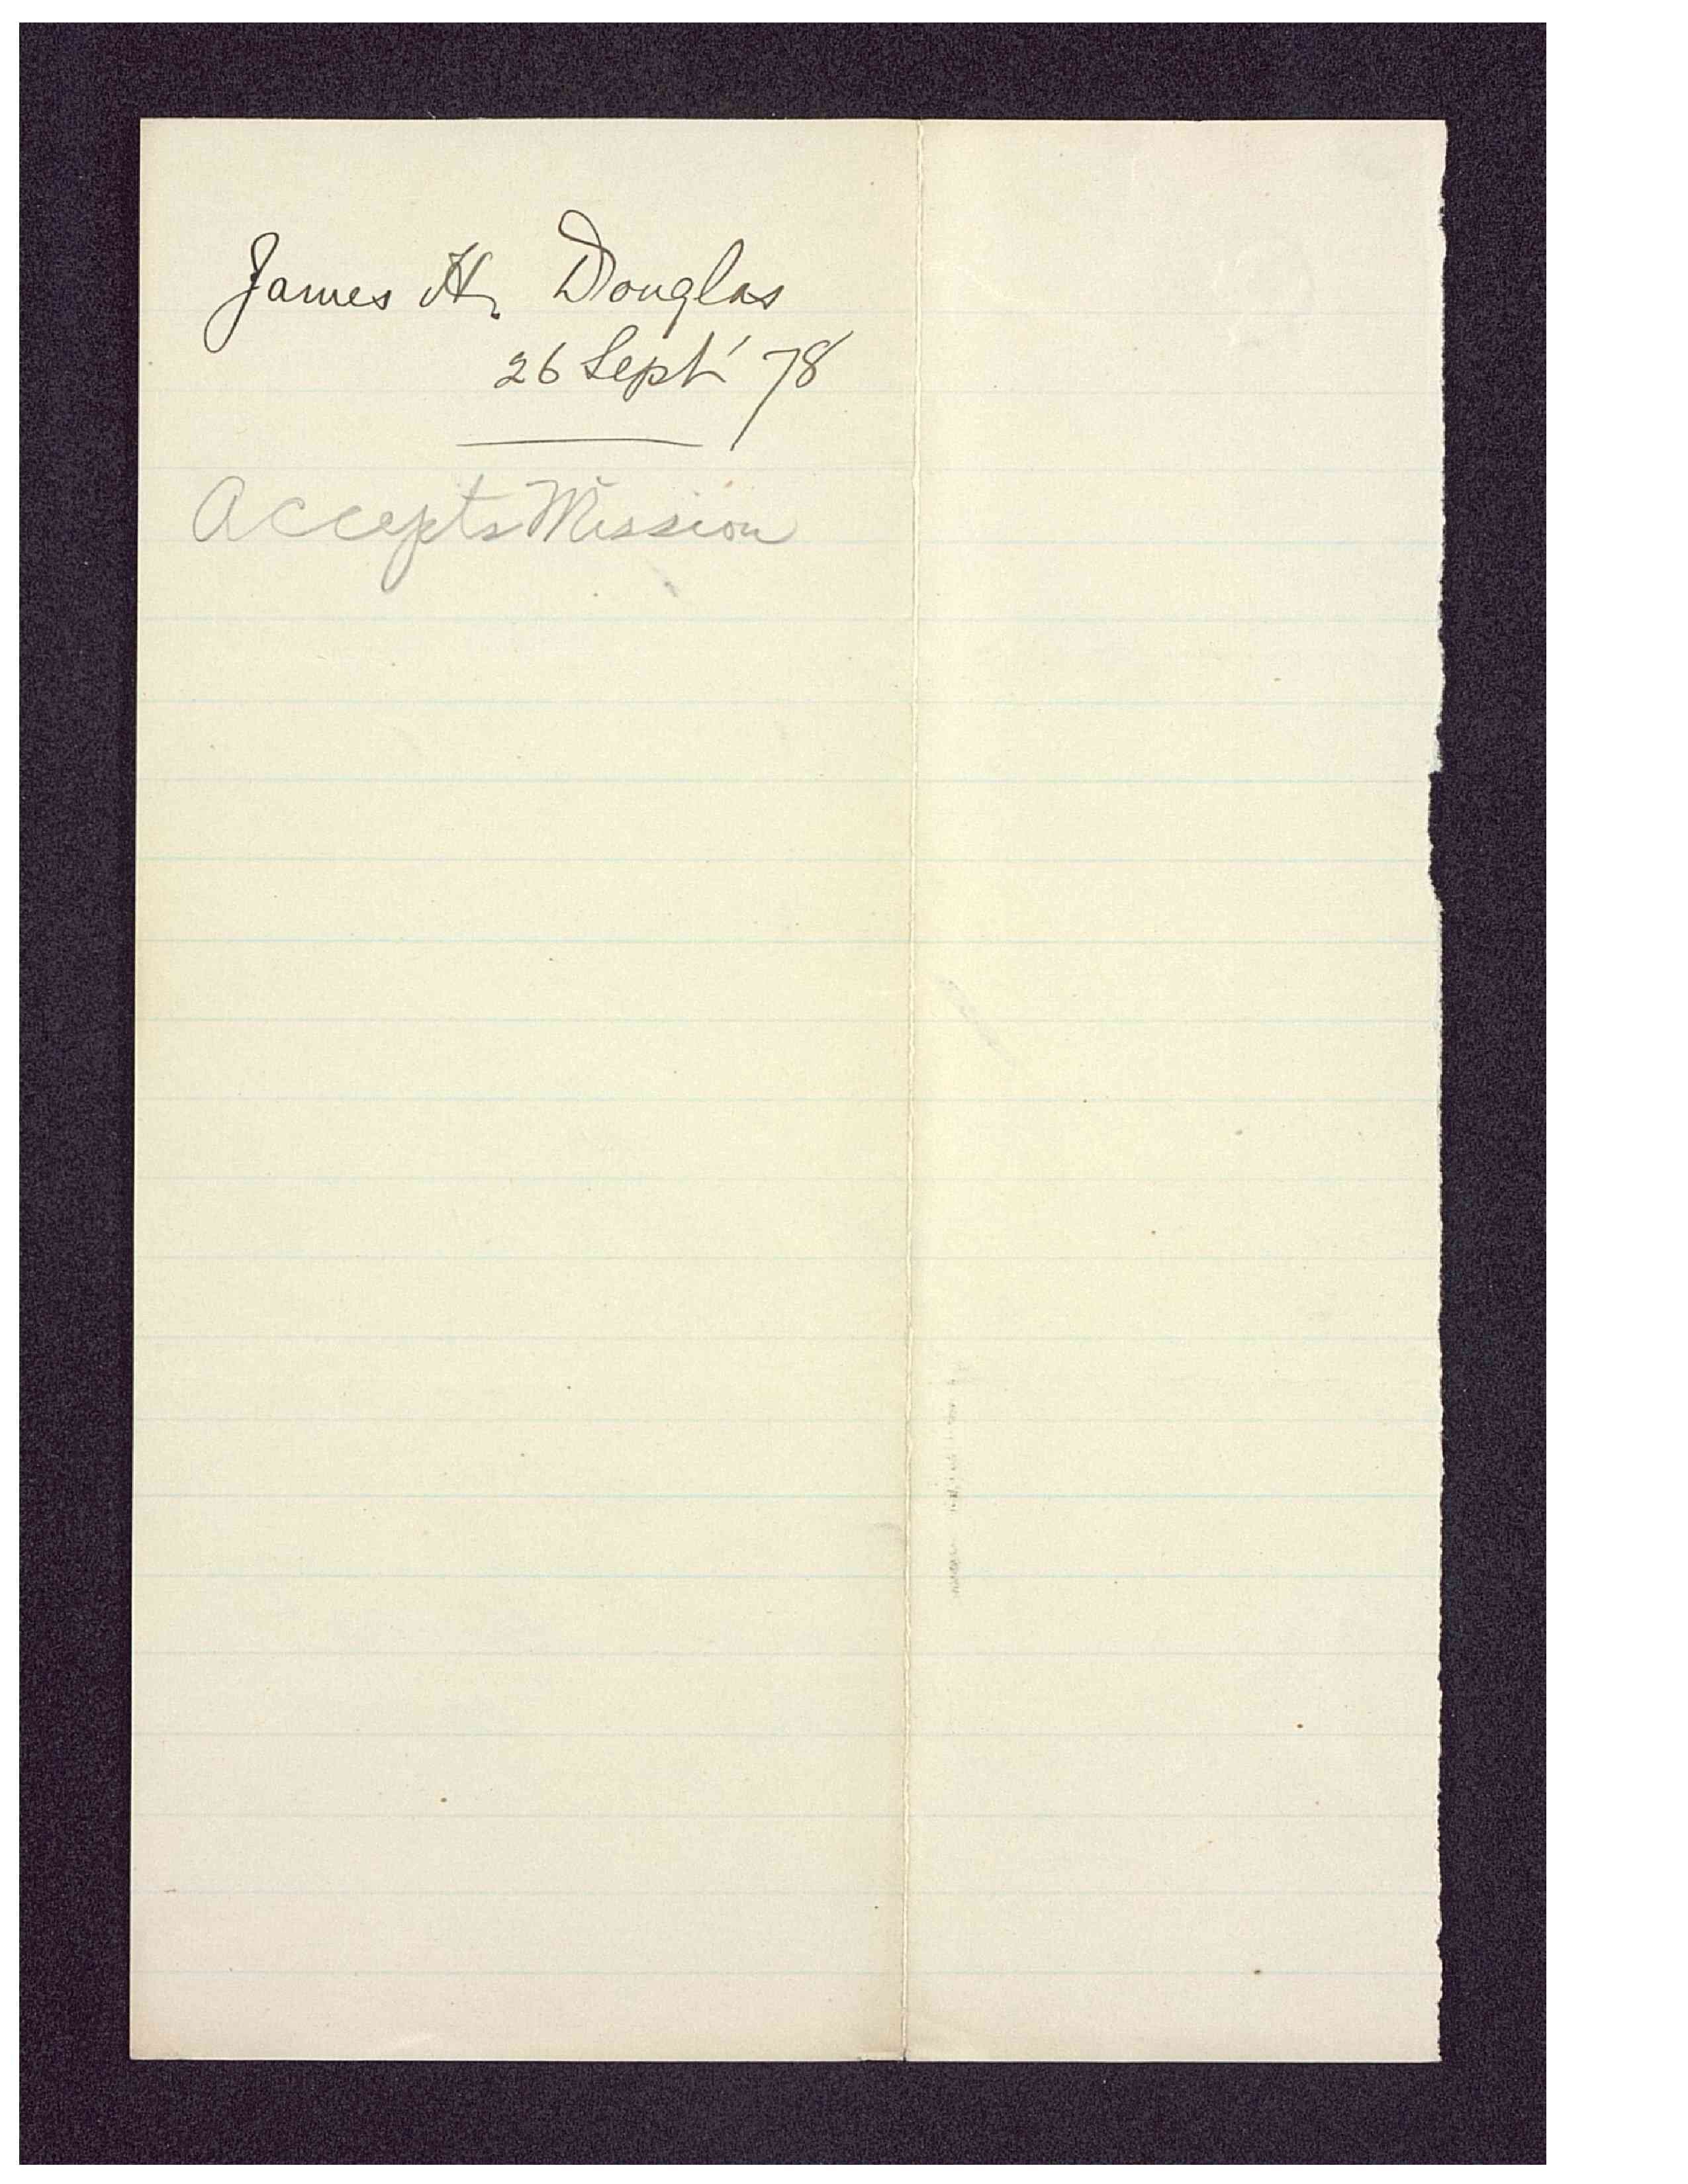 James H. Douglas
26 Sept' 78
Accepts Mission